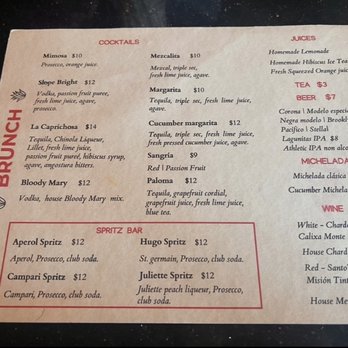 BRUNCH
COCKTAILS
Mimosa $10
Prosecco, orange juice.
Slope Bright $12
Vodka, passion fruit puree,
fresh lime juice, agave,
prosecco.
La Caprichosa $14
Tequila, Chinola Liqueur,
Lillet, fresh lime juice,
passion fruit pureé, hibiscus syrup,
agave, angostura bitters.
Bloody Mary $12
Vodka, house Bloody Mary mix.
Mezcalita $10
Mezcal, triple sec,
fresh lime juice, agave.
Margarita $10
Tequila, triple sec, fresh lime juice,
agave.
Cucumber margarita $12
Tequila, triple sec, fresh lime juice,
fresh pressed cucumber juice, agave.
Sangria $9
Red \ Passion Fruit
Paloma $12
Tequila, grapefruit cordial,
grapefruit juice, fresh lime juice,
blue tea.
SPRITZ BAR
Aperol Spritz $12
Aperol, Prosecco, club soda.
Campari Spritz $12
Campari, Prosecco, club soda.
Hugo Spritz $12
St. germain, Prosecco, club soda.
Juliette Spritz $12
Juliette peach liqueur, Prosecco,
club soda.
JUICES
Homemade Lemonade
Homemade Hibiscus Ice Tea
Fresh Squeezed Orange
TEA $3
BEER $7
Corona \ Modelo especial
Negra modelo \
Pacifico \ Stella\
Lagunitas IPA $8
Athletic IPA non
MICHELADA
Michelada clásica
Cucumber
WINE
White -
Calixa Monte
House
Red -
Misión
House